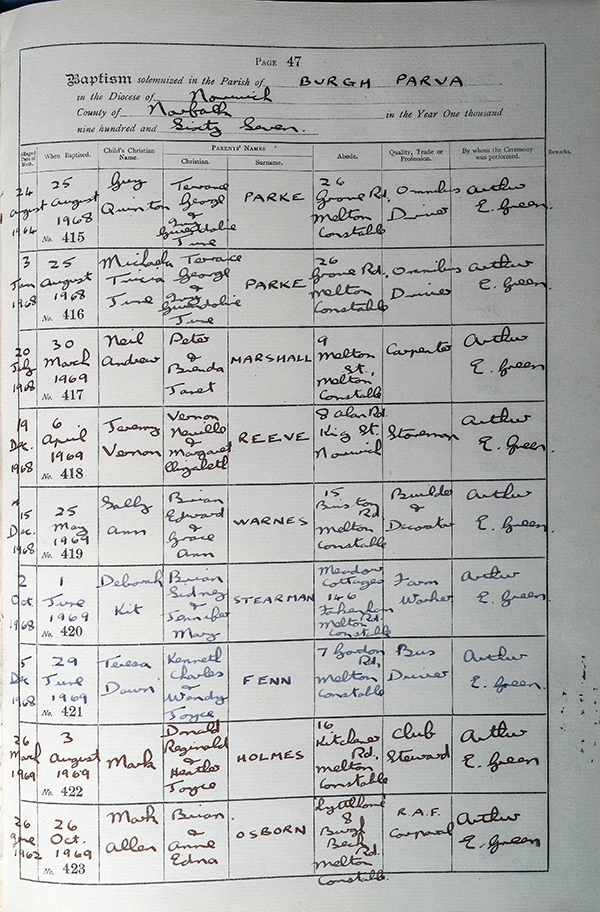 PAGE 47
Baptism solemnized in the Parish of BURGH PARVA
in the Diocese of Norwich
County of Norfolk in the Year One thousand
nine hundred and Sixty Seven.
Alleged Date of Birth. When Baptised. Child's Christian Name. PARENTS' NAMES Christian. Surname. Abode. Quality, Trade or Profession. By whom the Ceremony was performed. Remarks.
24 August 1964
25 August 1968
No. 415
Guy Quinton
Terrance George & Gwendolie June
PARKE
26 Grove Rd. Melton Constable
Omnibus Driver
Arthur E. Green.
3 Jan 1968
25 August 1968
No. 416
Michaela Tricia June
Terrance George & Gwendolie June
PARKE
26 Grove Rd. Melton Constable
Omnibus Driver
Arthur E. Green.
20 July 1968
30 March 1969
No. 417
Neil Andrew
Peter & Brenda Janet
MARSHALL
9 Melton St. Melton Constable
Carpenter
Arthur E. Green
19 Dec. 1968
6 April 1969
No. 418
Jeremy Vernon
Vernon Neville & Margaret Elizabeth
REEVE
8 Alan Rd. King St. Norwich
Storeman
Arthur E. Green.
15 Dec. 1968
25 May 1969
No. 419
Sally Ann
Brian Edward & Grace Ann
WARNES
15 Briston Rd. Melton Constable
Builder & Decorator
Arthur E. Green.
2 Oct. 1968
1 June 1969
No. 420
Deborah Kit
Brian Sidney & Jennifer May
STEARMAN
Meadow Cottages 146 Fakenham Rd. Melton Constable
Farm Worker
Arthur E. Green.
5 Dec 1968
29 June 1969
No. 421
Teresa Dawn
Kenneth Charles & Wendy Joyce
FENN
7 Gordon Rd. Melton Constable
Bus Driver
Arthur E. Green.
26 March 1969
3 August 1969
No. 422
Mark
Donald Reginald & Heather Joyce
HOLMES
16 Kitchener Rd. Melton Constable
Club Steward
Arthur E. Green
26 June 1962
26 Oct. 1969
No. 423
Mark Allen
Brian & Anne Edna
OSBORN
8 Burgh Beck Rd. Melton Constable.
R.A.F. Corporal
Arthur E. Green